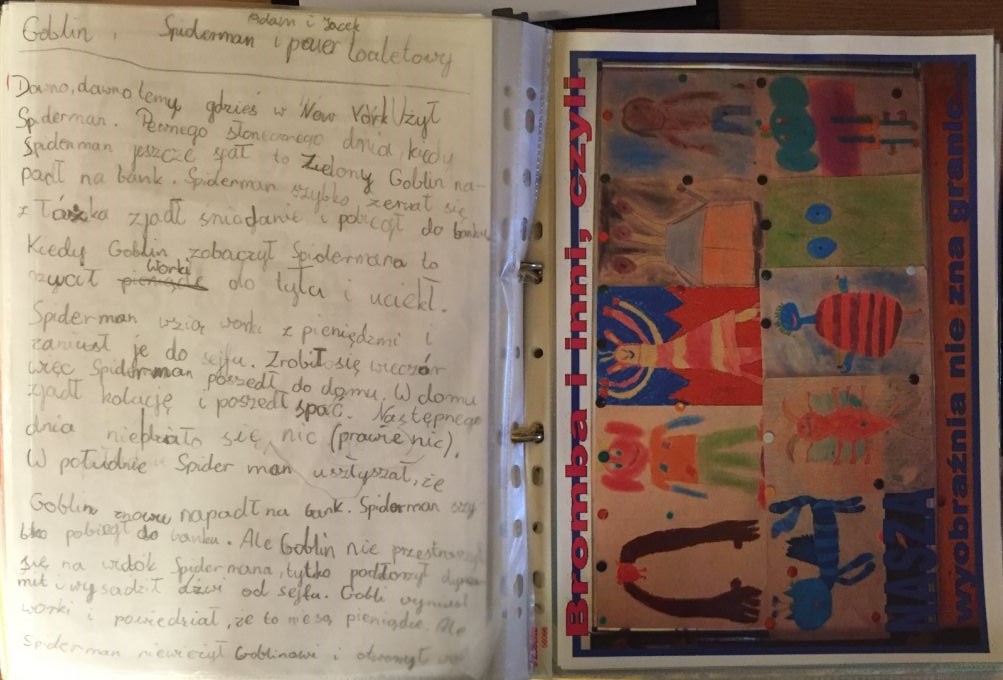 Adam i Jacek
Goblin, Spiderman i paier toaletowy
Dawno, dawno temu gdzieś w New York żył
Spiderman. Pewnego słonecznego dnia, kiedy
Spiderman jeszcze spał to Zielony Goblin na-
padł na bank. Spiderman szybko zerwał się
z łóżka zjadł śniadanie i pobiegł do banku
Kiedy Goblin zobaczył Spidermana to
rzucił worki do tyłu i uciekł.
Spiderman wzią worki z pieniędzmi i
zaniusł je do sejfu. Zrobił się wieczór
więc Spiderman poszedł do domu. W domu
zjadł kolację i poszedł spać. Następnego
dnia niedziało się nic (prawie nic).
W południe Spider man usztyszał, że
Goblin znowu napadł na bank. Spiderman szy
bko pobiegł do banku. Ale Goblin nie
się na widok Spidermana, tylko podłorzył
mit i wysadził dzwi od sejfu. Gobli
worki i powiedział, że to niesą pieniądze. Ale
Spiderman niewieżył Goblinowi i
Bromba i inni, czyli
NASZA
wyobraźnia nie zna granic...